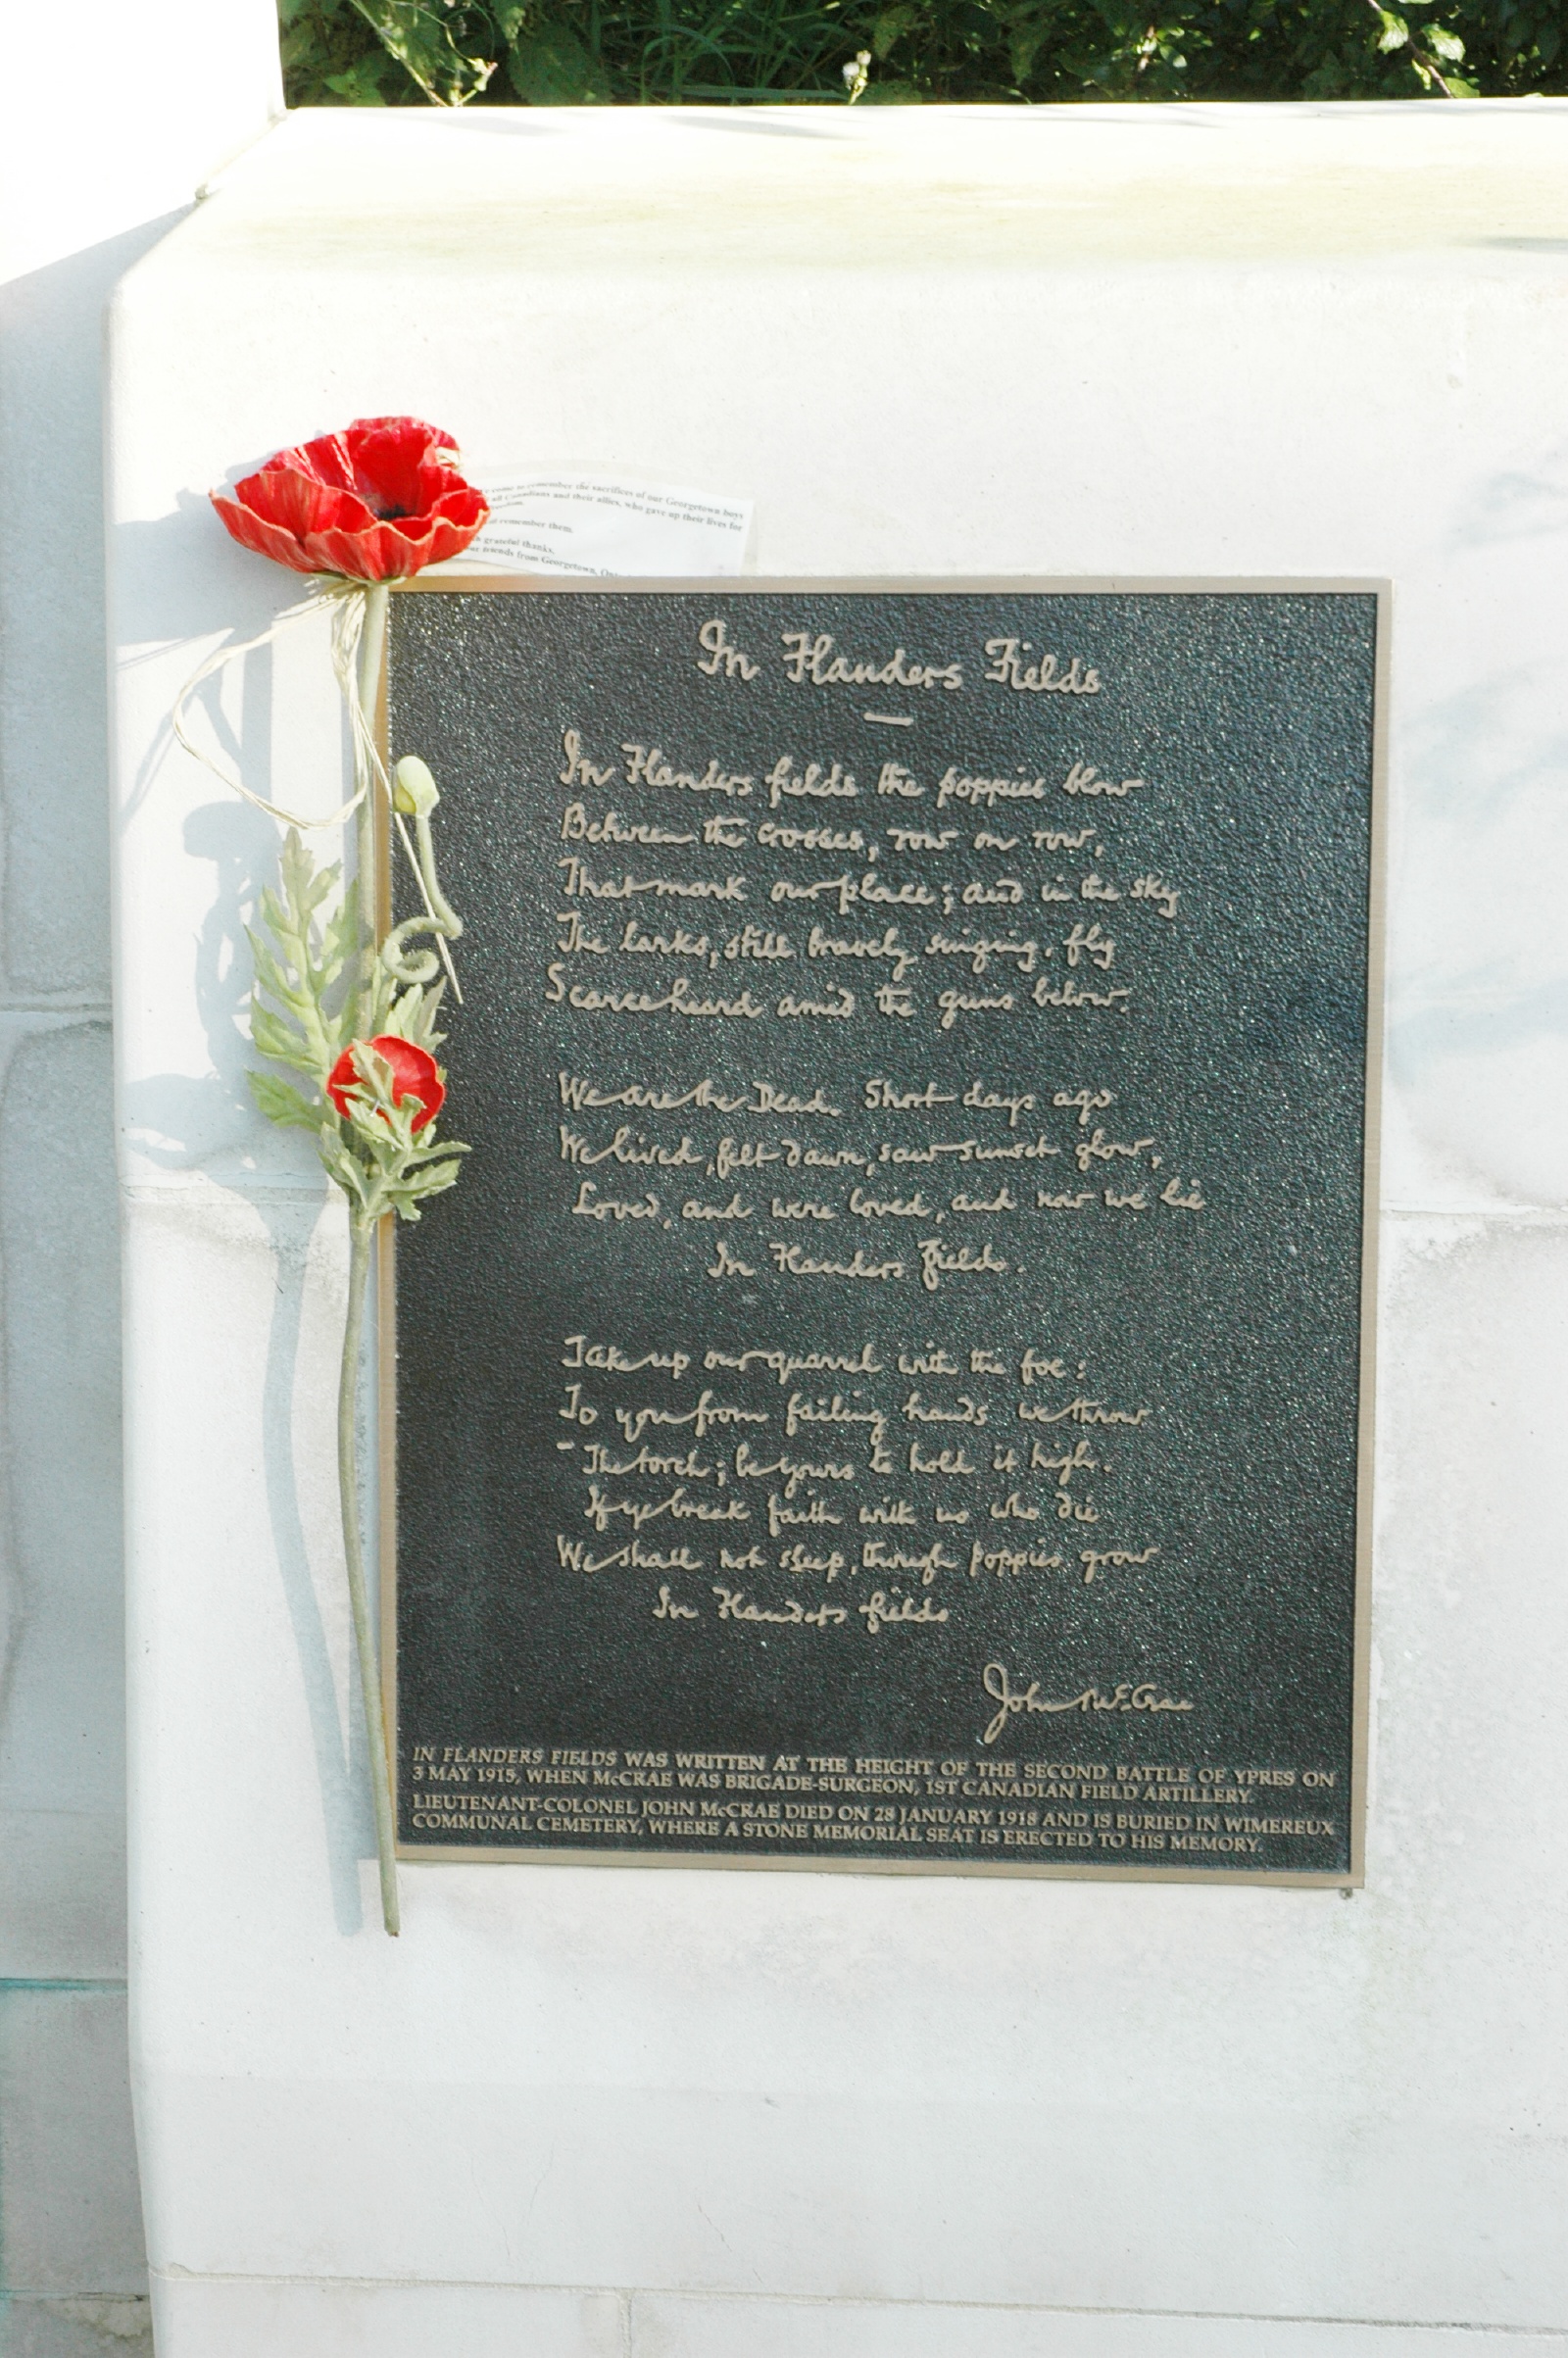 come to remember the sacrifices of our Georgetown boys
all Canadians and their allies, who gave up their lives for
freedom.
remember them.
grateful thanks,
friends from Georgetown,
In Flanders Fields
In Flanders fields the poppies blow
Between the crosses, row on row,
That mark our place; and in the sky
The larks, still bravely singing, fly
Scarce heard amid the guns below.
We are the Dead. Short days ago
We lived, felt dawn, saw sunset glow,
Loved, and were loved, and now we lie
In Flanders fields.
Take up our quarrel with the foe:
To you from failing hands we throw
The torch; be yours to hold it high.
If ye break faith with us who die
We shall not sleep, though poppies grow
In Flanders fields
John McCrae
IN FLANDERS FIELDS WAS WRITTEN AT THE HEIGHT OF THE SECOND BATTLE OF YPRES ON
3 MAY 1915, WHEN McCRAE WAS BRIGADE-SURGEON, 1ST CANADIAN FIELD ARTILLERY.
LIEUTENANT-COLONEL JOHN McCRAE DIED ON 28 JANUARY 1918 AND IS BURIED IN WIMEREUX
COMMUNAL CEMETERY, WHERE A STONE MEMORIAL SEAT IS ERECTED TO HIS MEMORY.